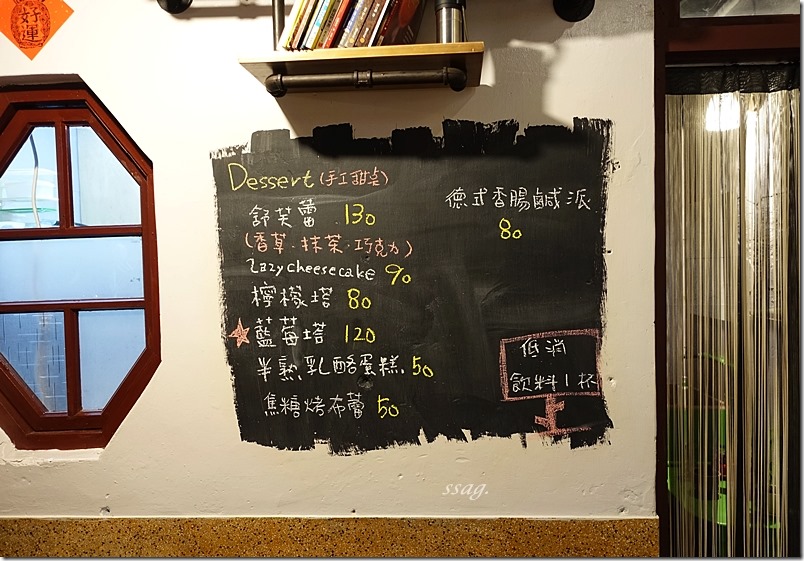 好運
Dessert (手工甜点)
舒芙蕾 130
(香草.抹茶.巧克力)
Lazy cheesecake 90
檸檬塔 80
藍莓塔 120
半熟乳酪蛋糕. 50
焦糖烤布蕾 50
德式香腸鹹派
80
低消
飲料1杯
ssag.